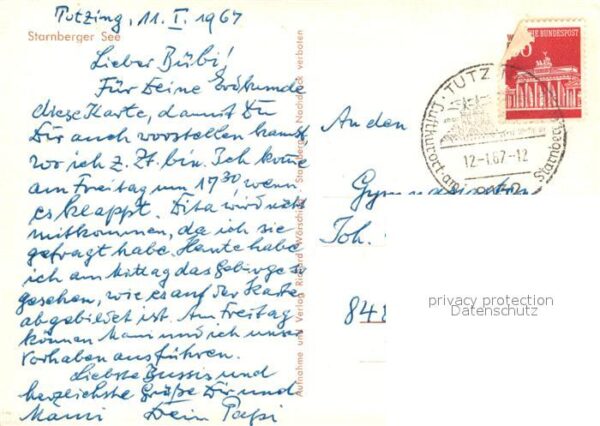 Tutzing, 11. I. 1967
Starnberger See
Lieber Bubi!
Für Deine Erdkunde
diese Karte, damit Du
Dir auch vorstellen kannst
wo ich z. Zt. bin. Ich komme
am Freitag um 17 30, wenn
es klappt. Dita wird nicht
mitkommen, da ich sie
gefragt habe. Heute habe
ich am Mittag das Gebirge so
gesehen, wie es auf der Karte
abgebildet ist. Am Freitag
können Mami und ich unser
Vorhaben ausführen.
Liebste Bussis und
herzlichste Grüße Dir und
Mami Dein Papi
Aufnahme und Verlag Richard Wörsching - Starnberg - Nachdruck verboten
DEUTSCHE BUNDESPOST
TUTZ
12-1.67-12
Luftkurort
Starnberg
An den
Gymnasiasten
Joh.
848
privacy protection
Datenschutz